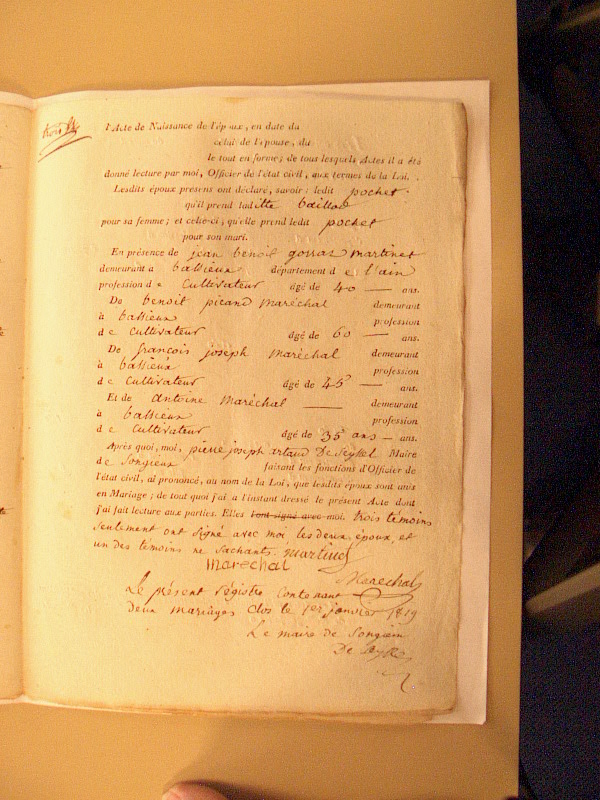 l'Acte de Naissance de l'époux, en date du
celui de l'épouse, du
le tout en forme; de tous lesquels Actes il a été
donné lecture par moi, Officier de l'état civil, aux termes de la Loi.
Lesdits époux présens ont déclaré, savoir: ledit pochet
qu'il prend laditte baillod
pour sa femme; et celle-ci, qu'elle prend ledit pochet
pour son mari.
En présence de jean benoit gossas martinet
demeurant a bassieux département de l'ain
profession de Cultivateur âgé de 40 — ans.
De benoit picand maréchal demeurant
à bassieux profession
de Cultivateur âgé de 60 — ans.
De françois joseph maréchal demeurant
à bassieux profession
de Cultivateur âgé de 45 — ans.
Et de antoine maréchal — demeurant
à bassieux profession
de Cultivateur âgé de 35 ans — ans.
Après quoi, moi, pierre joseph artaud De Seyssel Maire
de Songieux faisant les fonctions d'Officier de
l'état civil, ai prononcé, au nom de la Loi, que lesdits époux sont unis
en Mariage; de tout quoi j'ai a l'instant dressé le présent Acte dont
j'ai fait lecture aux parties. Elles l'ont signé avec moi. trois témoins
seulement ont signé avec moi les deux époux et
un des témoins ne Sachants. martinet
marechal
Marechal
Le présent régistre Contenant
deux mariages Clos le 1er janvier 1819
Le maire de Songieu
De Seyssel